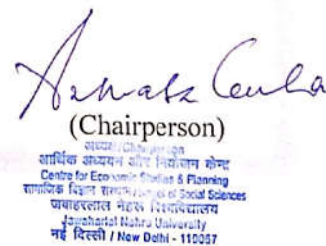 (Chairperson)
अध्यक्ष/Chairperson
आर्थिक अध्ययन और नियोजन केन्द्र
Centre for Economic Studies & Planning
सामाजिक विज्ञान संस्थान/School of Social Sciences
जवाहरलाल नेहरू विश्वविद्यालय
Jawaharlal Nehru University
नई दिल्ली / New Delhi - 110067